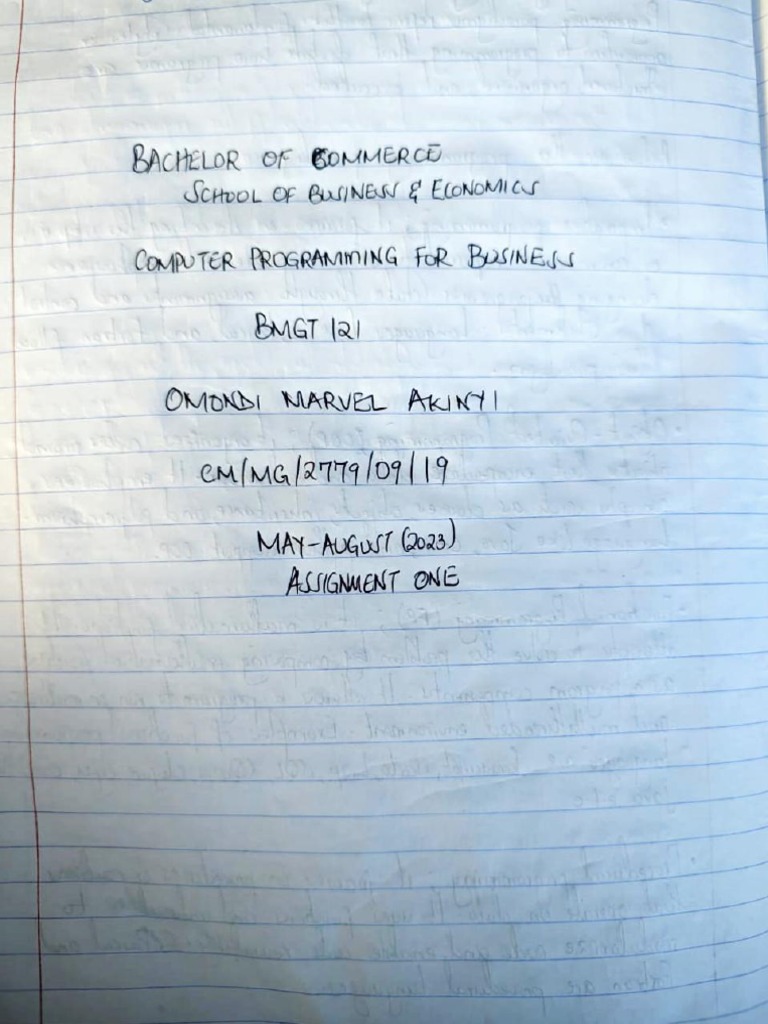 BACHELOR OF COMMERCE
SCHOOL OF BUSINESS & ECONOMICS
COMPUTER PROGRAMMING FOR BUSINESS
BMGT 121
OMONDI MARVEL AKINYI
CM/MG/2779/09/19
MAY-AUGUST (2023)
ASSIGNMENT ONE